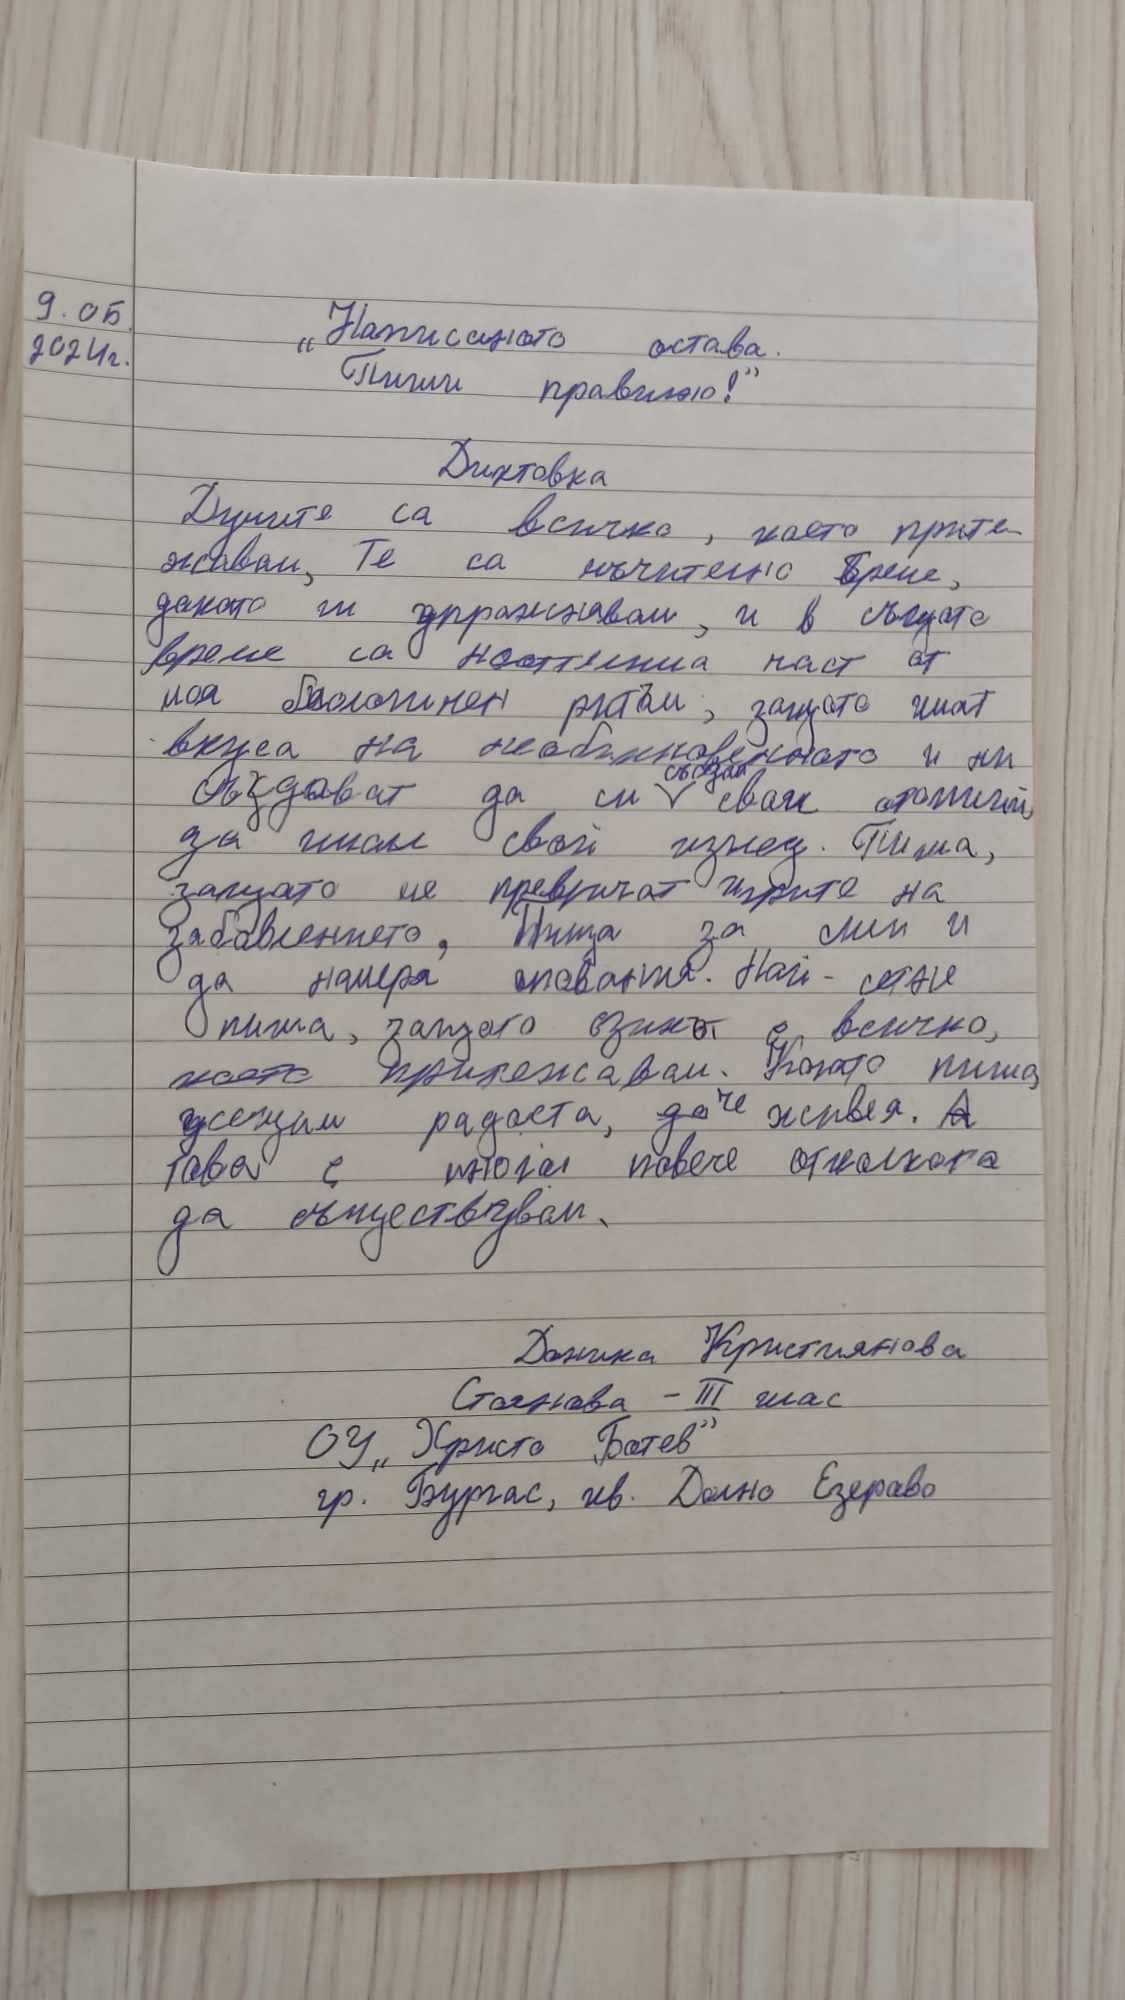 9.05
2024г.
„Написаното остава.
Пиши правилно!"
Диктовка
Думите са всичко, което прите-
жавам, Те са мъчително бреме,
докато ги упражнявам, и в същото
време са неотменна част от
моя биологичен ритъм, защото имат
вкуса на необикновеното и ми
създават да си създам свои
за имам свой изглед. Пиша,
защото ме превричат игрите на
забавлението, Пиша за смели и
да намеря опования. Най-сетне
пиша, защото езикът е всичко,
което притежавам. Когато пиша,
усещам радоста, че живея. А
това е много повече отколкото
да съществувам.
Доника Кристиянова
Стоянова - III клас
ОУ „Христо Ботев"
гр. Бургас, кв. Долно Езерово